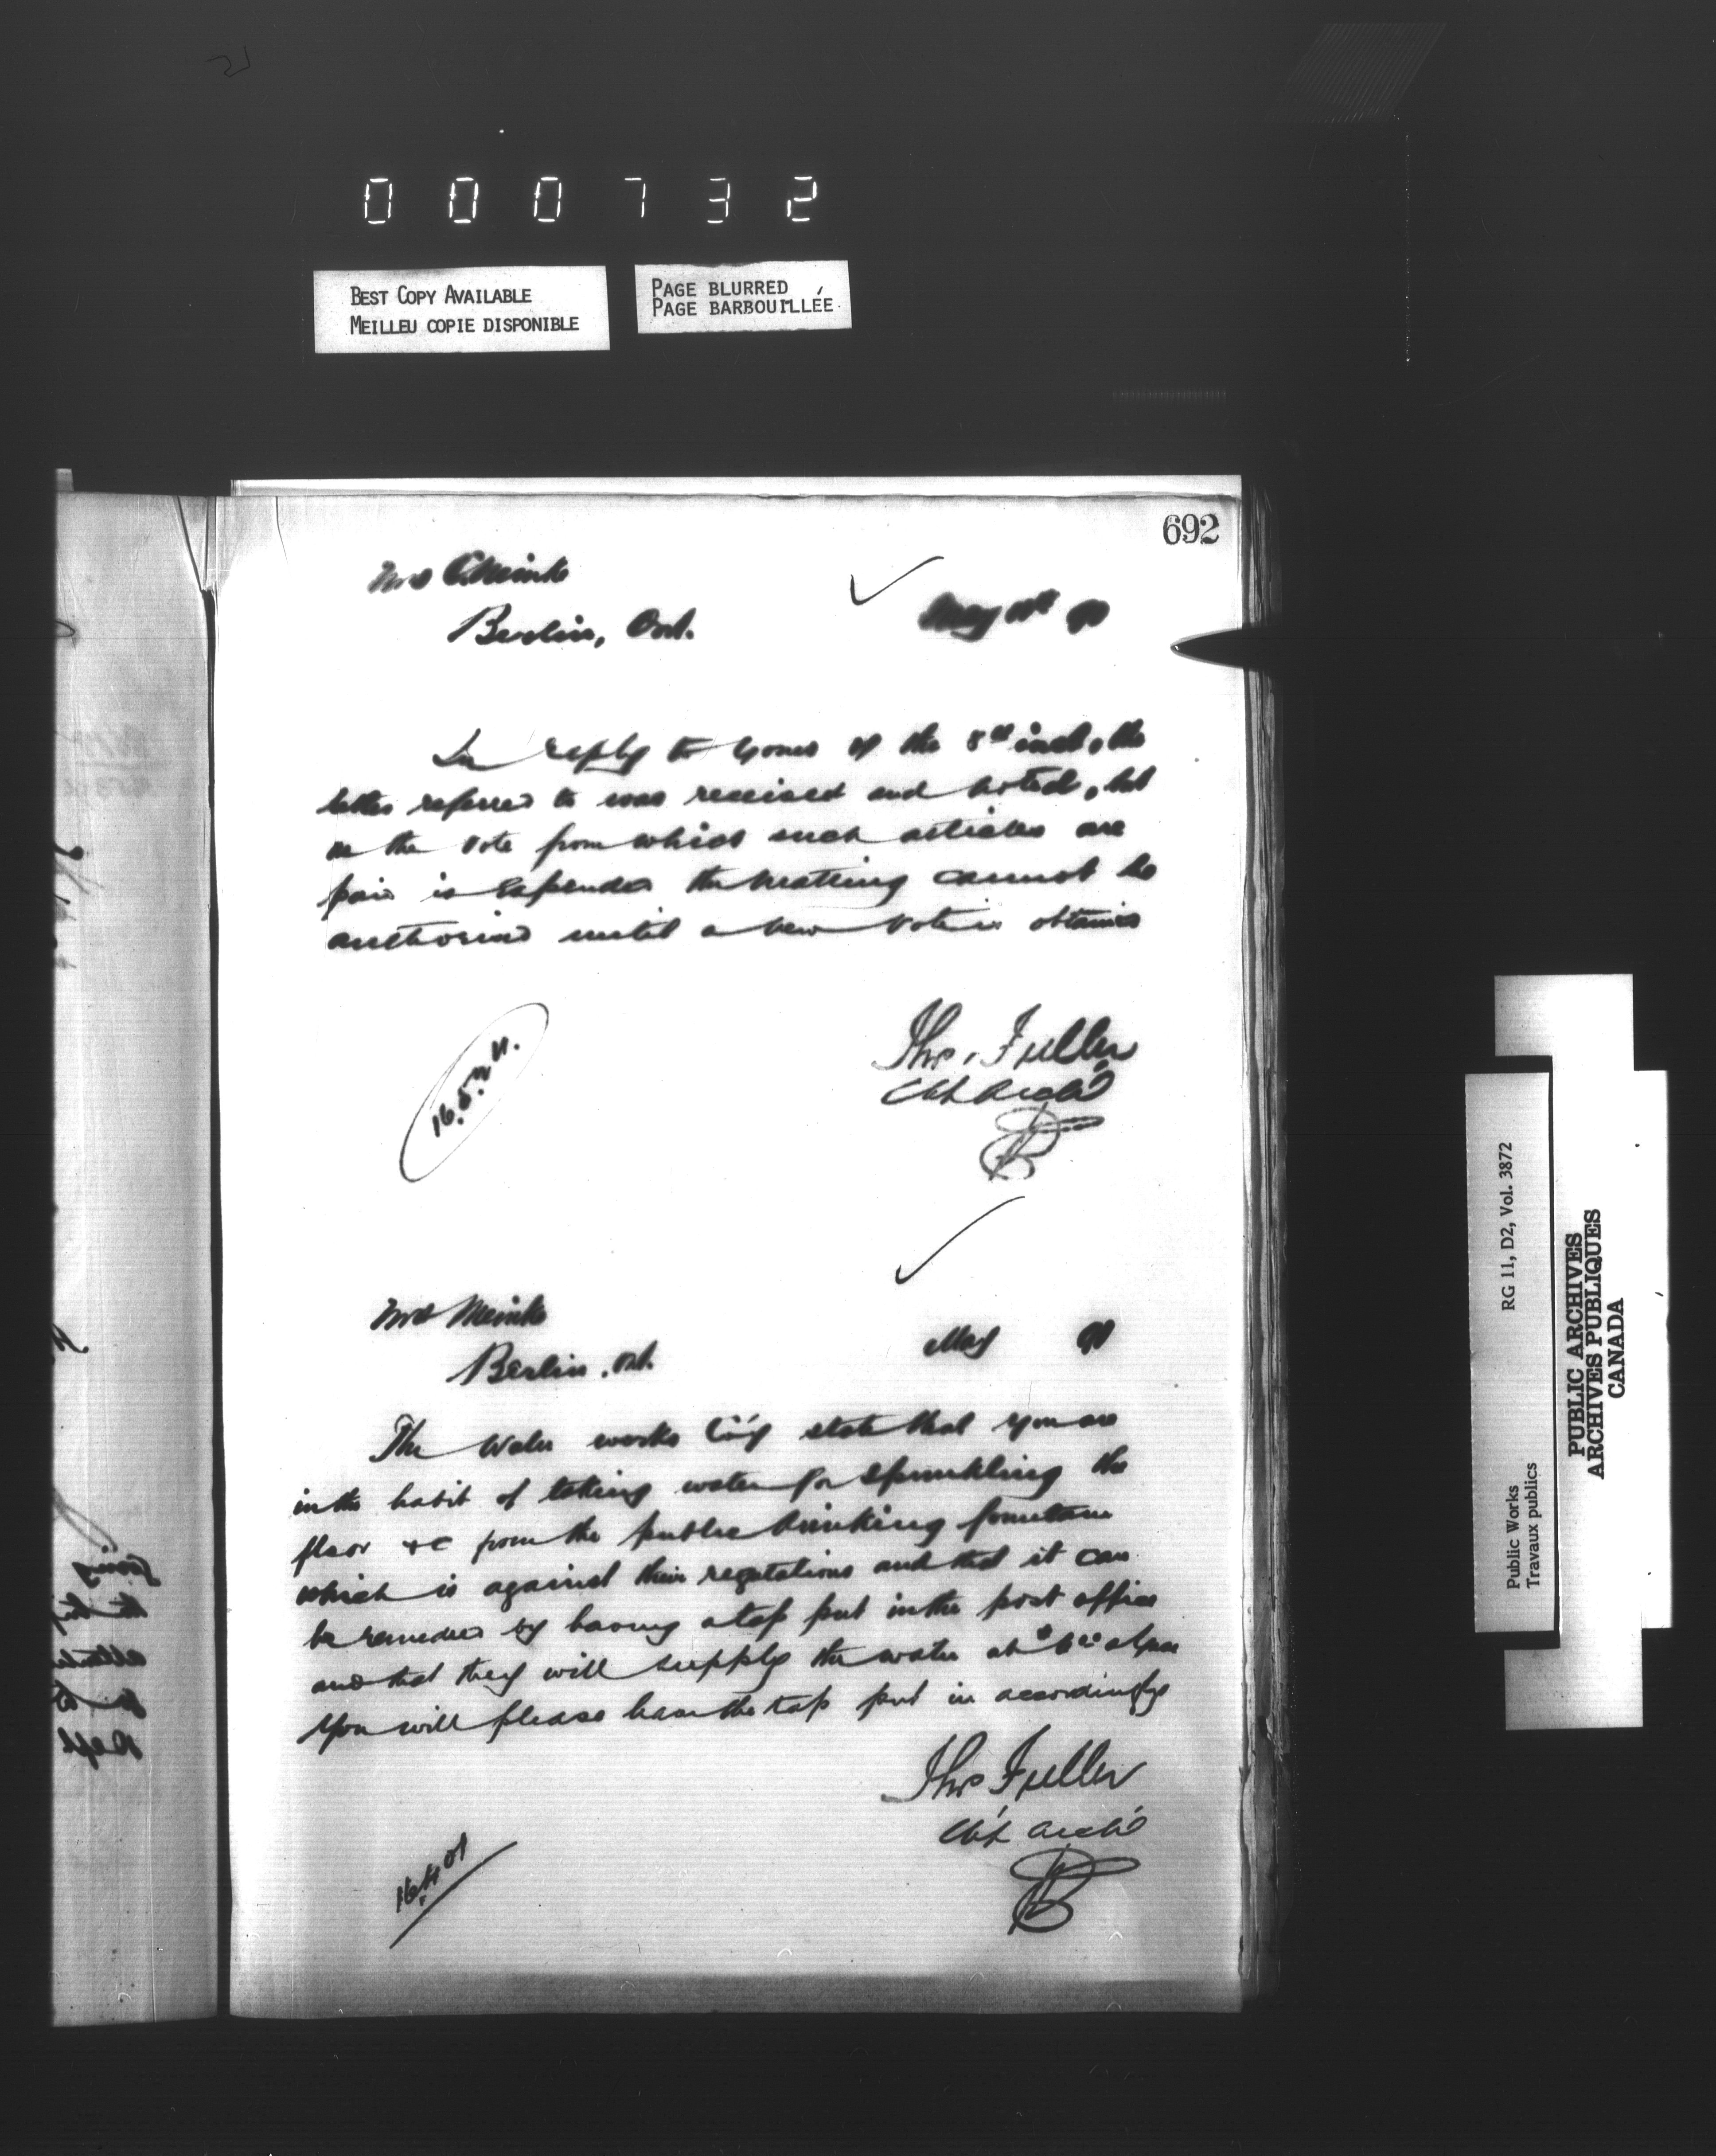 000732
BEST COPY AVAILABLE
MEILLEU COPIE DISPONIBLE
PAGE BLURRED
PAGE BARBOUILLÉE
692
Mrs
Berlin, Ont.
May 90
In reply to yours of the 8th inst, the
letter referred to was received and noted, but
as the vote from which such articles are
paid is expended the matting cannot be
authorized until a new vote is obtained
Thos. Fuller
Ch Archt
Mrs
Berlin. Ont.
May 90
The Water works Co'y state that you are
in the habit of taking water for sprinkling the
floor &c from the public drinking fountain
which is against their regulations and that it can
be remedied by having a tap put in the post office
and that they will supply the water at $6.00 a year
You will please have the tap put in accordingly
Thos Fuller
Ch Archt
RG 11, D2, Vol. 3872
Public Works
Travaux publics
PUBLIC ARCHIVES
ARCHIVES PUBLIQUES
CANADA